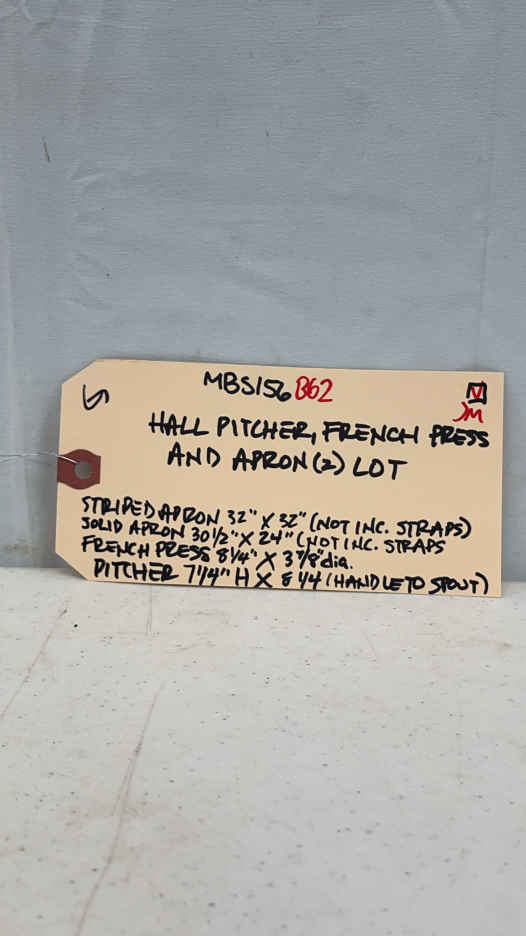 MBS156 B62
JM
HALL PITCHER, FRENCH PRESS
AND APRON (2) LOT
STRIPED APRON 32" X 32" (NOT INC. STRAPS)
SOLID APRON 30 1/2" X 24" (NOT INC. STRAPS
FRENCH PRESS 8 1/4" X 3 7/8" dia.
PITCHER 7 1/4" H X 8 1/4 (HANDLE TO SPOUT)